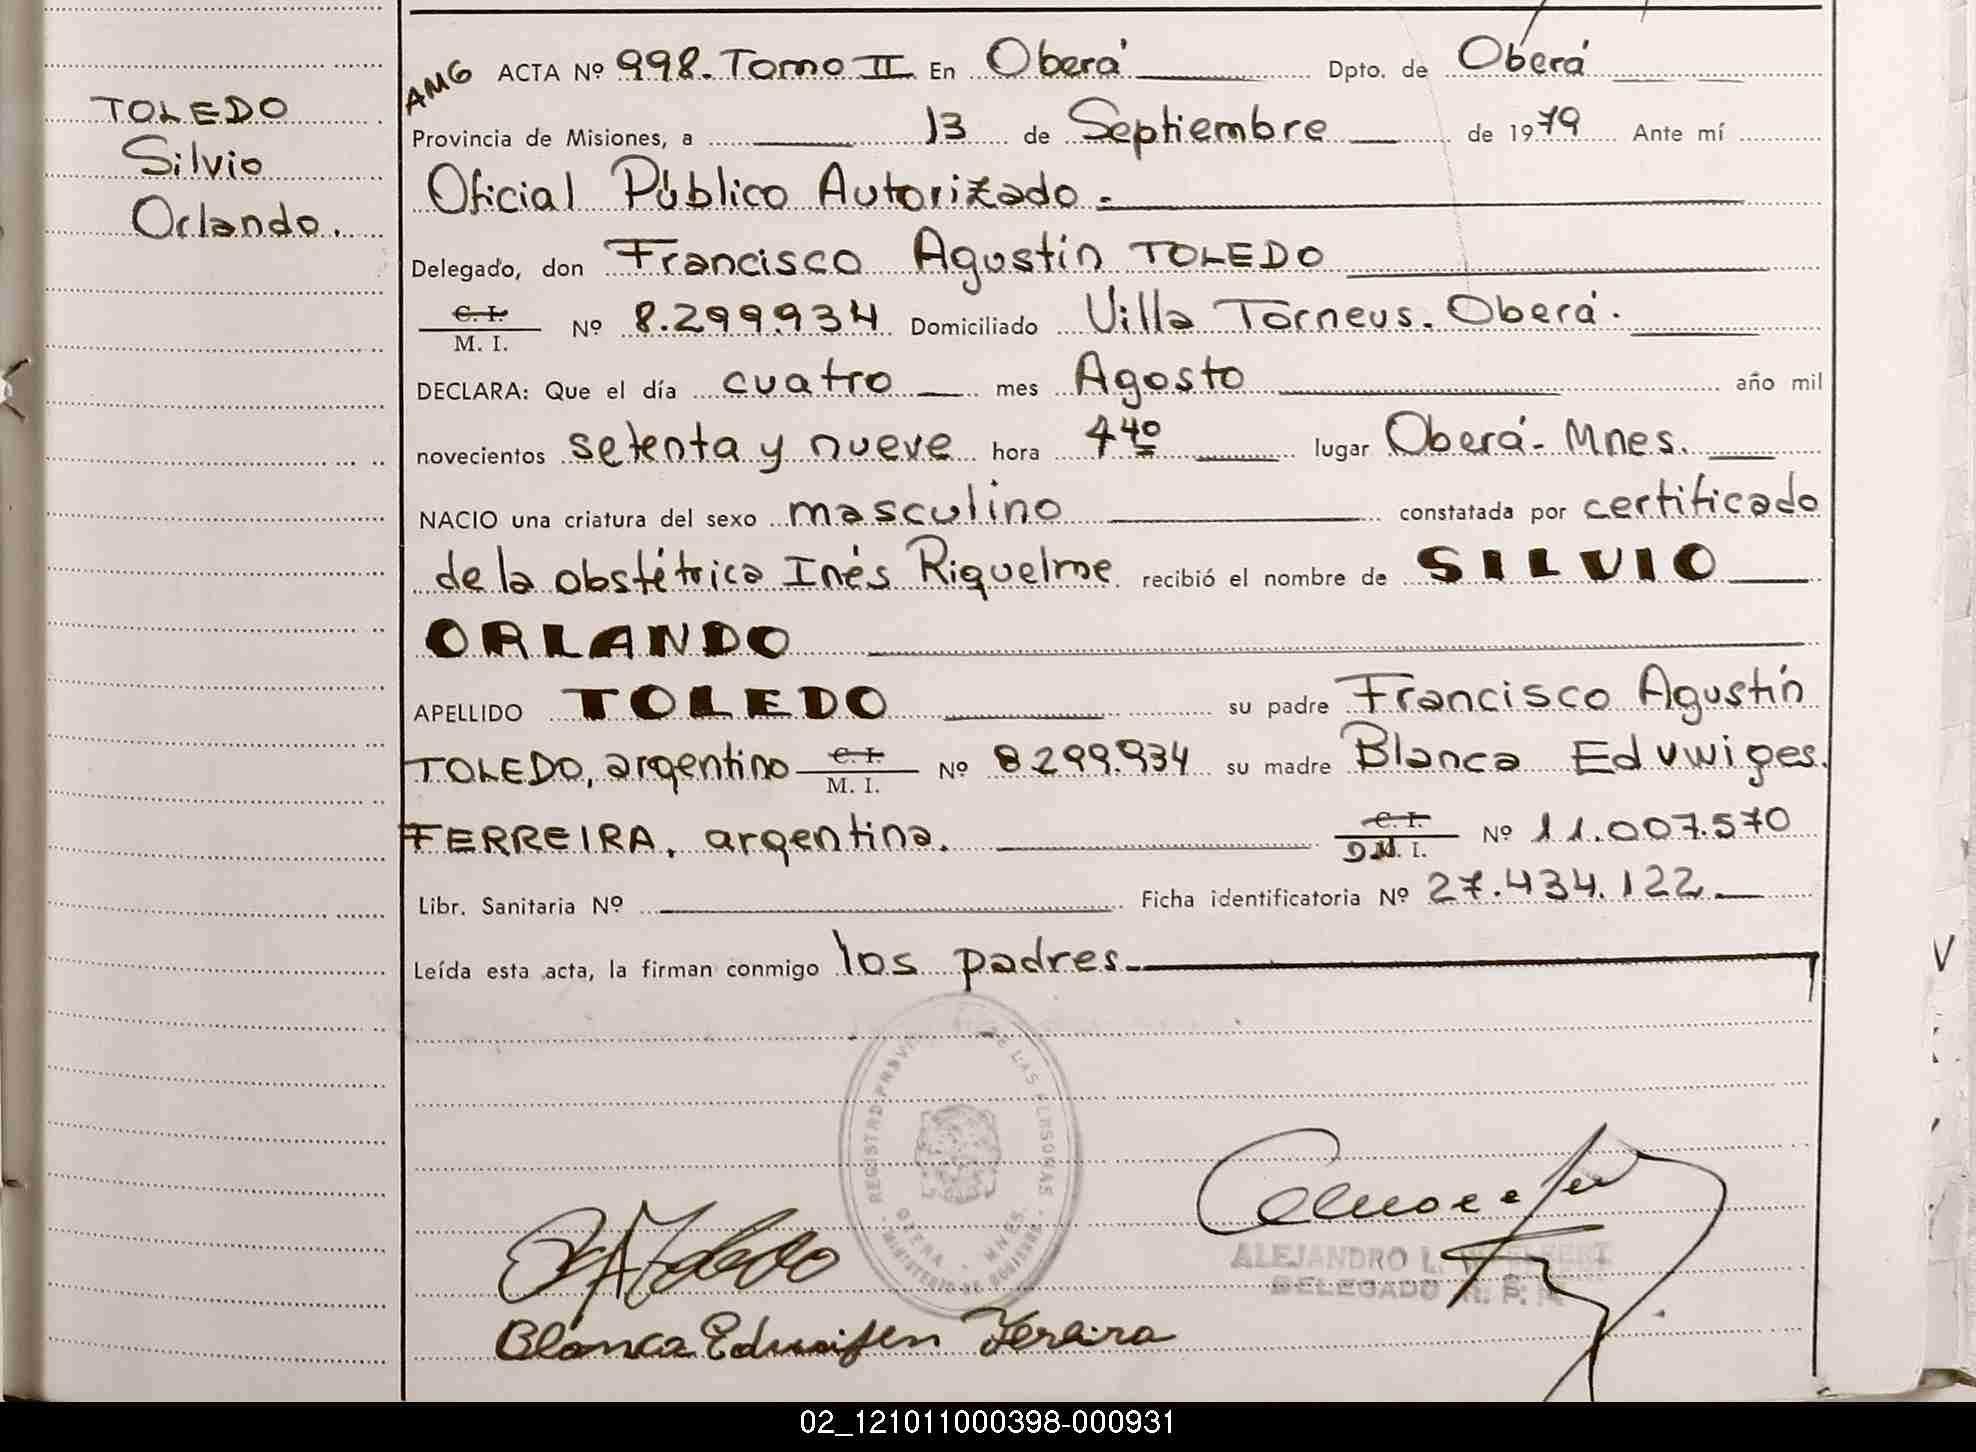 TOLEDO
Silvio
Orlando.
AMG ACTA Nº 998. Tomo II En Oberá Dpto. de Oberá
Provincia de Misiones, a 13 de Septiembre de 1979 Ante mí
Oficial Público Autorizado.
Delegado, don Francisco Agustín TOLEDO
C. I.
M. I. Nº 8.299.934 Domiciliado Villa Torneus. Oberá.
DECLARA: Que el día cuatro mes Agosto año mil
novecientos setenta y nueve hora 4 40 lugar Oberá- Mnes.
NACIO una criatura del sexo masculino constatada por certificado
de la obstétrica Inés Riquelme recibió el nombre de SILVIO
ORLANDO
APELLIDO TOLEDO su padre Francisco Agustín
TOLEDO, argentino C. I. M. I. Nº 8299.934 su madre Blanca Eduwiges
FERREIRA, argentina. C. I. D.N. I. Nº 11.007.570
Libr. Sanitaria Nº Ficha identificatoria Nº 27.434.122
Leída esta acta, la firman conmigo los padres
REGISTRO PROVINCIAL DE LAS PERSONAS
OBERA - MNES.
MINISTERIO DE GOBIERNO
Toledo
ALEJANDRO L.
DELEGADO R. P.
Blanca Ferreira
02_121011000398-000931